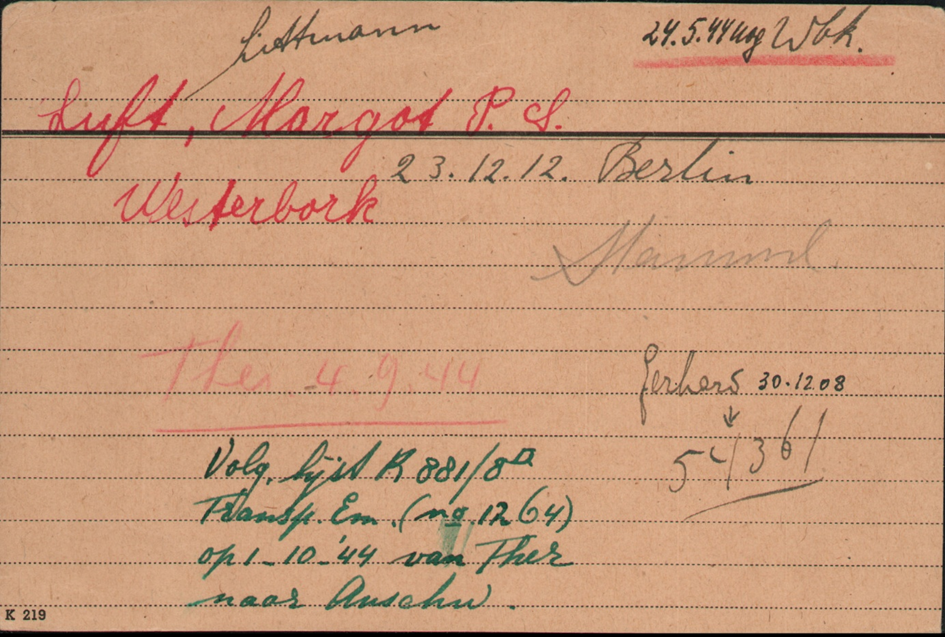 Littmann
24.5.44 Wbk.
Luft, Margot P. S.
23.12.12. Berlin
Westerbork
Ther 4.9.44
Gerhard 30.12.08
Volg. lijst R 881/8
Transp. Em. (no. 1264)
op 1-10-'44 van Ther
naar Auschw.
K 219